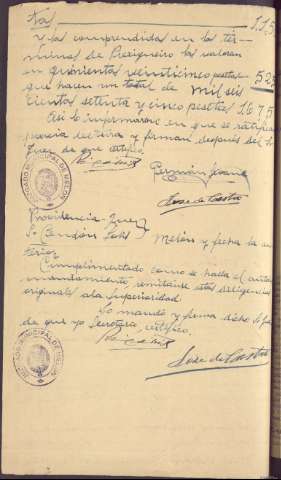 tas 115
Y las comprendidas en los tér-
minos de Prexigueiro las valoran
en quinientas veinticinco pesetas 525
que hacen un total de mil seis
cientas setenta y cinco pesetas 1675
Así lo informaron en que se ratifica
previa lectura y firman después del Sr
Juez de que certifico
Germán
José de Castro
JUZGADO MUNICIPAL DE MELON
Providencia Juez
Sr Cendón Melón y fecha la an
terior
Cumplimentado como se halla el ante
mandamiento, remítanse estas diligencias
originales a la Superioridad.
Lo mandó y firma dicho Sr Juez
de que yo Secretario, certifico.
José de Castro
JUZGADO MUNICIPAL DE MELON